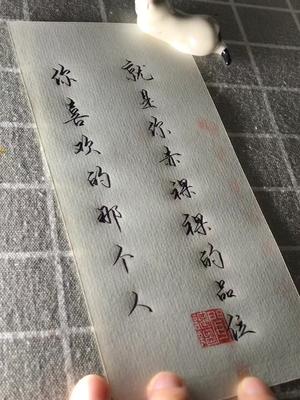 你喜欢的那个人
就是你赤裸裸的品位